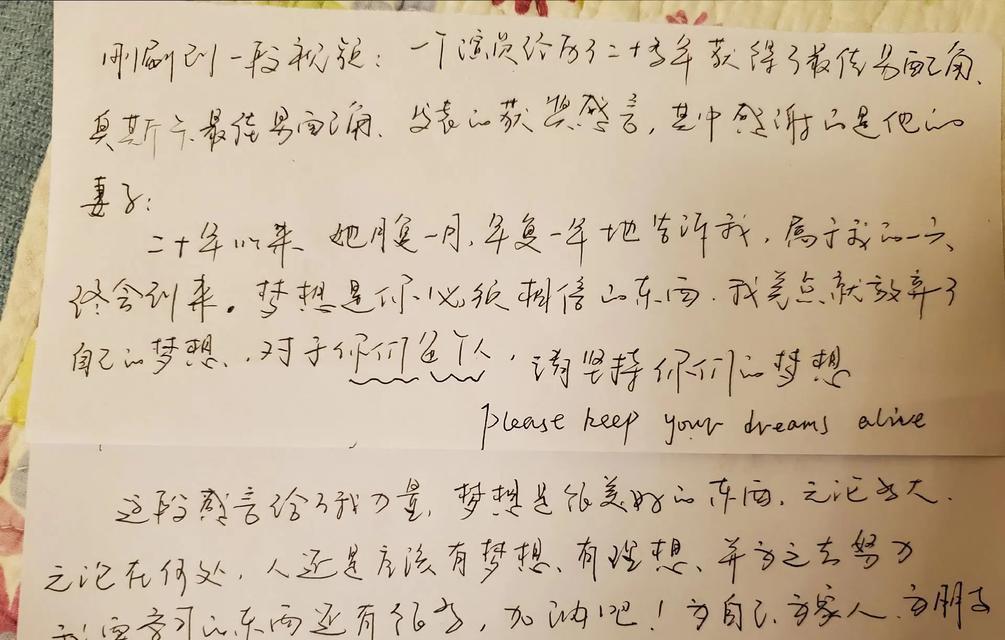 刚刷到一段视频：一个演员给了二十多年获得了最佳男配角、
奥斯卡最佳男配角、发表的获奖感言，其中感谢的是他的
妻子：
二十年以来、她月复一月，年复一年地告诉我，属于我的一天、
终会到来。梦想是你必须相信的东西．我差点就放弃了
自己的梦想、对于你们这个人，请坚持你们的梦想
please keep your dreams alive
这段感言给了我力量，梦想是很美好的东西．无论多大．
无论在何处，人还是应该有梦想、有理想、并为之去努力
我要学习的东西还有很多，加油吧！为自己为家人、为朋友